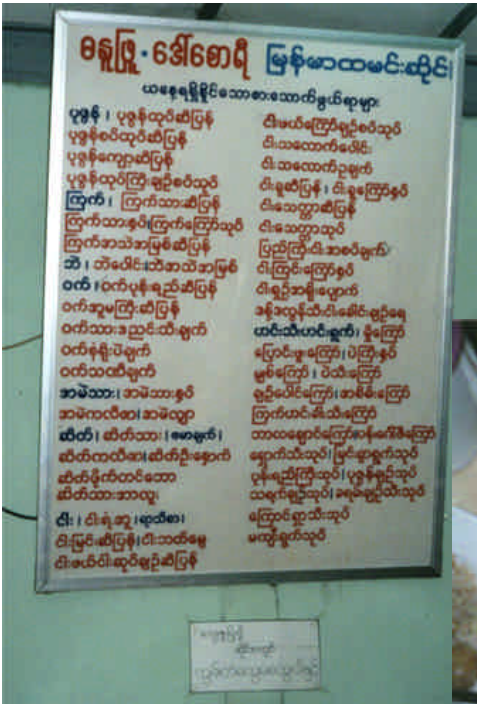 ဓနုဖြူ - ဒေါ်စောရီ မြန်မာထမင်းဆိုင်၊
ယနေ့ရရှိနိုင်သောစားသောက်ဖွယ်ရာများ
ပုစွန် ၊ ပုစွန်ထုပ်ဆီပြန်
ပုစွန်စပ်ထုပ်ဆီပြန်
ပုစွန်ကျော့ဆီပြန်
ပုစွန်ထုပ်ကြီးချဉ်စပ်သုပ်
ကြက် ၊ ကြက်သားဆီပြန်
ကြက်သားနှပ်၊ကြက်ကြော်သုပ်
ကြက်အသဲအမြစ်ဆီပြန်
ဘဲ ၊ ဘဲပေါင်း၊ဘဲအသဲအမြစ်
ဝက် ၊ ဝက်ပုန်းရည်ဆီပြန်
ဝက်အူမကြီးဆီပြန်
ဝက်သားဒညင်းသီးချက်
ဝက်နံရိုးပဲချက်
ဝက်သဏီချက်
အမဲသား၊ အမဲသားနှပ်
အမဲကလီစာ၊အမဲလျှာ
ဆိတ် ၊ ဆိတ်သား
ဆိတ်ကလီစာ၊ဆိတ်ဦးနှောက်
ဆိတ်သားအာလူး
ငါး ၊ ငါးရံ့အူ ၊ရာသီစာ၊
ငါးမြင်းဆီပြန်၊ငါးဘတ်မွှေ
ငါးဖယ်ဝါးဆုပ်ချဉ်ဆီပြန်
ငါးဖယ်ကြော်ချဉ်စပ်သုပ်
ငါးသလောက်ပေါင်း
ငါးသလောက်ဥချက်
ငါးရွှဆီပြန် ၊ ငါးရွှကြော်နှပ်
ငါးသေတ္တာဆီပြန်
ငါးသေတ္တာသုပ်
ပြည်ကြီးငါးအစပ်ချက်
ငါးကြင်းကြော်နှပ်
ငါးရှဉ့်အရိုးပျောက်
ဒန့်ဒလွန်သီးငါးခေါင်းချဉ်ရေ
ဟင်းသီးဟင်းရွက်၊ မှိုကြော်
ပြောင်းဖူးကြော်၊ပဲကြီးနှပ်
မျှစ်ကြော် ၊ ပဲသီးကြော်
ချဉ်ပေါင်ကြော်၊အစိမ်းကြော်
ကြက်ဟင်းခါးသီးကြော်
ရှောက်သီးသုပ်၊မြင်းခွာရွက်သုပ်
ပုန်းရည်ကြီးသုပ်၊ပုစွန်ချဉ်သုပ်
သရက်ချဉ်သုပ်၊ခရမ်းချဉ်သီးသုပ်
ကြောင်ရှာသီးသုပ်
မကျီးရွက်သုပ်